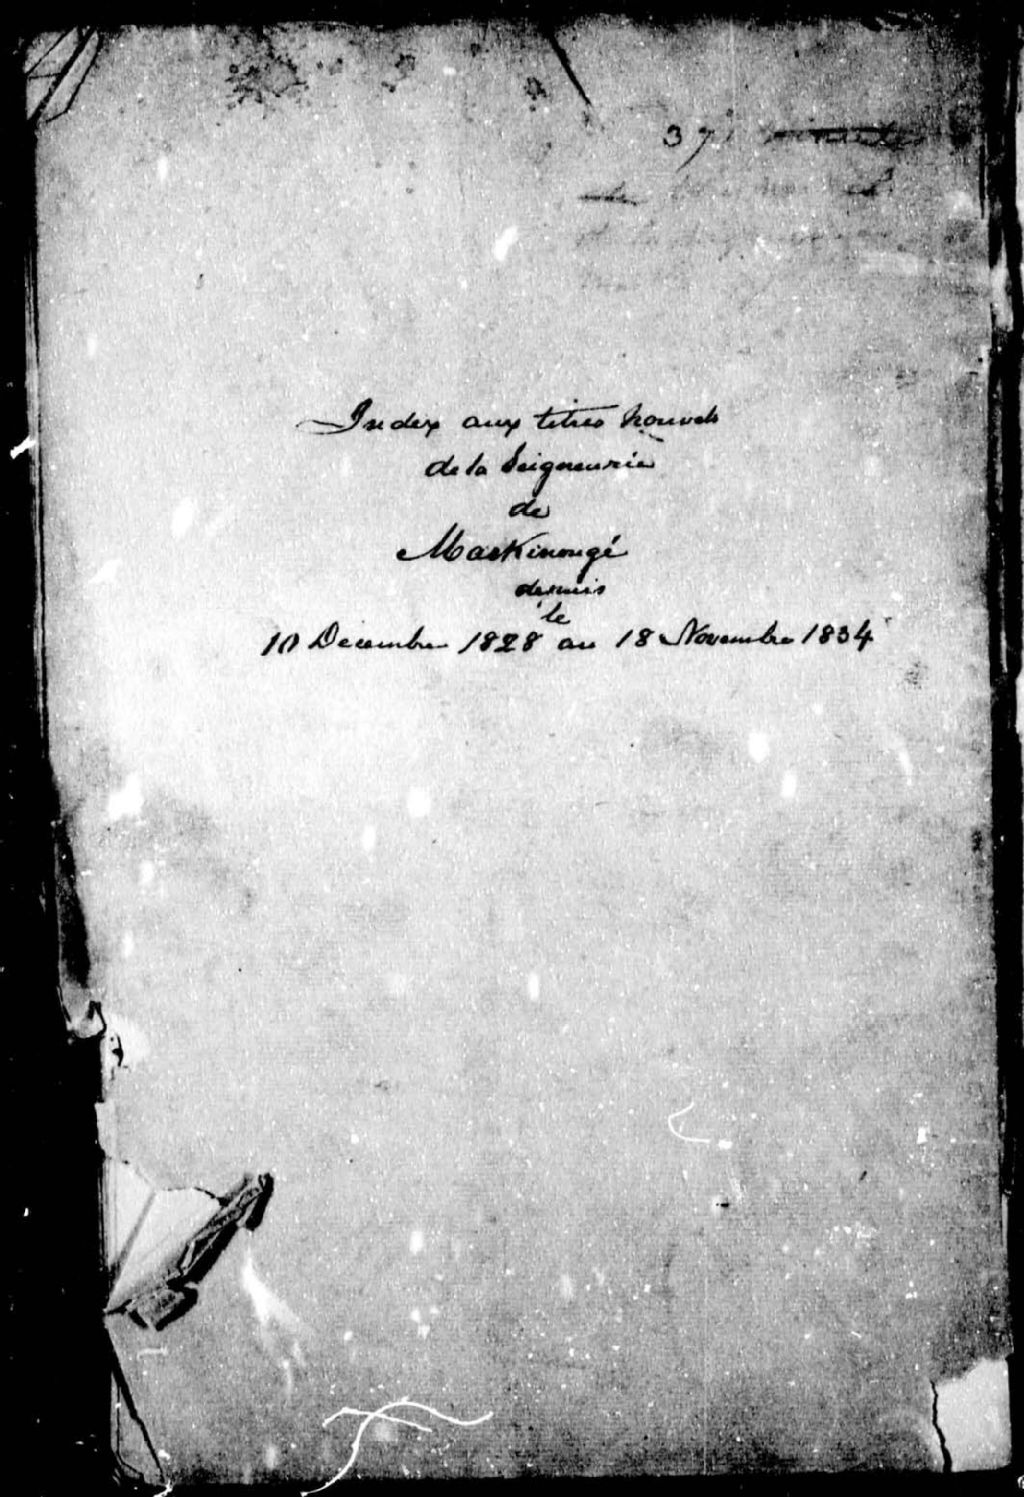 37
de
Index aux titres nouvels
de la Seigneurie
de
Maskinongé
depuis
le
10 Decembre 1828 au 18 Novembre 1834